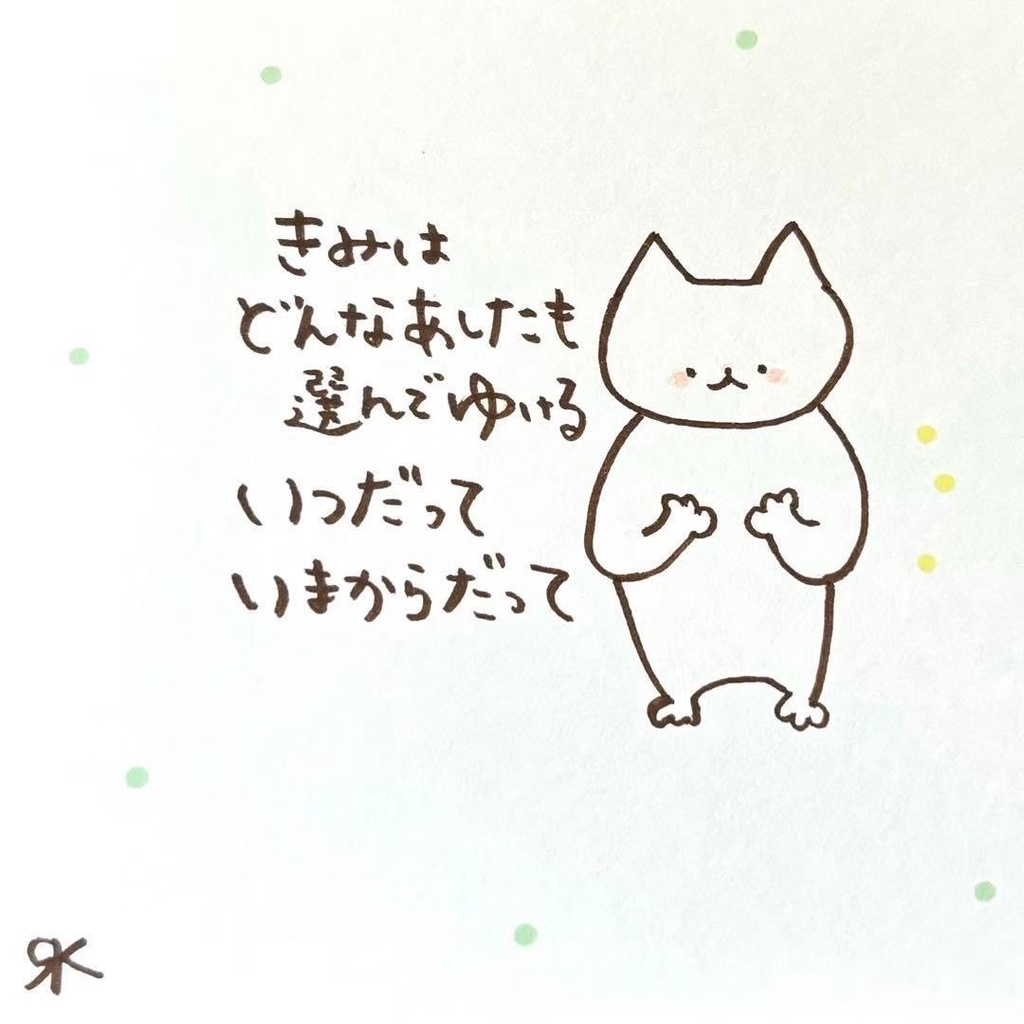 きみは
どんなあしたも
選んでゆける
いつだって
いまからだって